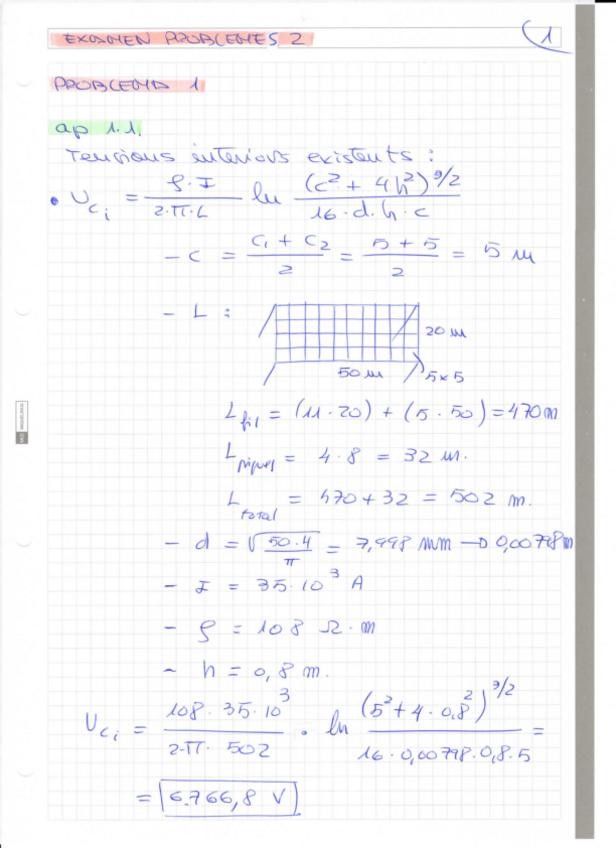 EXAMEN PROBLEMES 2
1
PROBLEMA 1
ap 1.1.
Tensions interiors existents :
• U_ci = ρ·I / 2·π·L ln (c² + 4h²)^3/2 / 16·d·h·c
- c = c₁ + c₂ / 2 = 5 + 5 / 2 = 5 m
- L :
20 m
50 m
5x5
L_fil = (11·20) + (5·50) = 470 m
L_piques = 4·8 = 32 m.
L_total = 470 + 32 = 502 m.
- d = √(50·4 / π) = 7,998 mm → 0,00798 m
- I = 35·10³ A
- ρ = 108 Ω·m
- h = 0,8 m.
U_ci = 108·35·10³ / 2·π·502 · ln (5² + 4·0,8²)^3/2 / 16·0,00798·0,8·5 =
= 6.766,8 V